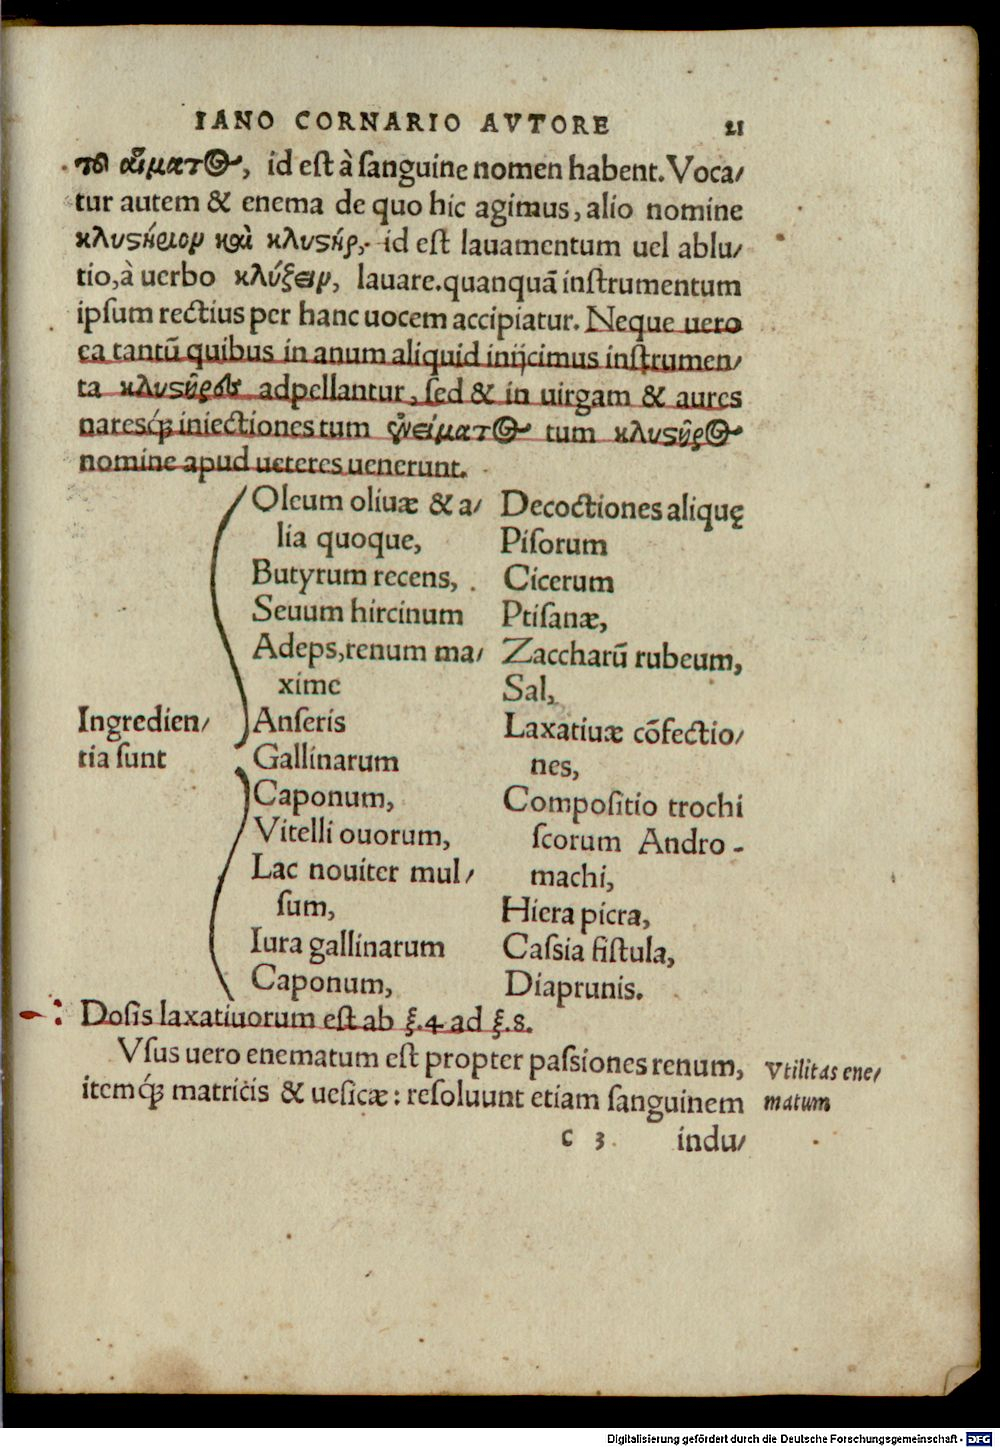 IANO CORNARIO AVTORE 21
τοῦ αἵματος, id est à sanguine nomen habent. Voca/
tur autem & enema de quo hic agimus, alio nomine
κλυστήριον καὶ κλυστήρ, id est lauamentum uel ablu/
tio, à uerbo κλύζειν, lauare. quanquā instrumentum
ipsum rectius per hanc uocem accipiatur. Neque uero
ea tantū quibus in anum aliquid inijcimus instrumen/
ta κλυστῆρες adpellantur, sed & in uirgam & aures
naresq́; iniectiones tum tum κλυστῆρος
nomine apud ueteres uenerunt.
Ingredien/
tia sunt
Oleum oliuæ & a/
lia quoque,
Butyrum recens,
Seuum hircinum
Adeps, renum ma/
xime
Anseris
Gallinarum
Caponum,
Vitelli ouorum,
Lac nouiter mul/
sum,
Iura gallinarum
Caponum,
Decoctiones aliquę
Pisorum
Cicerum
Ptisanæ,
Zaccharū rubeum,
Sal,
Laxatiuæ cōfectio/
nes,
Compositio trochi
scorum Andro-
machi,
Hiera picra,
Cassia fistula,
Diaprunis.
Dosis laxatiuorum est ab ℥.4 ad ℥.8.
Vsus uero enematum est propter passiones renum,
itemq́; matricis & uesicæ: resoluunt etiam sanguinem
Vtilitas ene/
matum
c 3 indu/
Digitalisierung gefördert durch die Deutsche Forschungsgemeinschaft - DFG